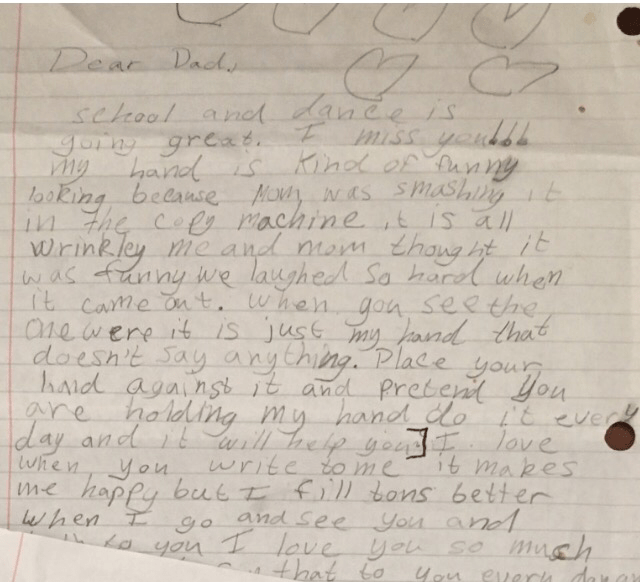 Dear Dad,
school and dance is
going great. I miss you!!!
my hand is Kind of funny
looking because Mom was smashing it
in the copy machine it is all
wrinkley me and mom thought it
was funny we laughed so hard when
it came out. When you see the
one were it is just my hand that
doesn't say anything. Place your
hand against it and pretend you
are holding my hand do it every
day and it will help you.] I love
when you write to me it makes
me happy but I fill tons better
when I go and see you and
to you I love you so much
that to you every day